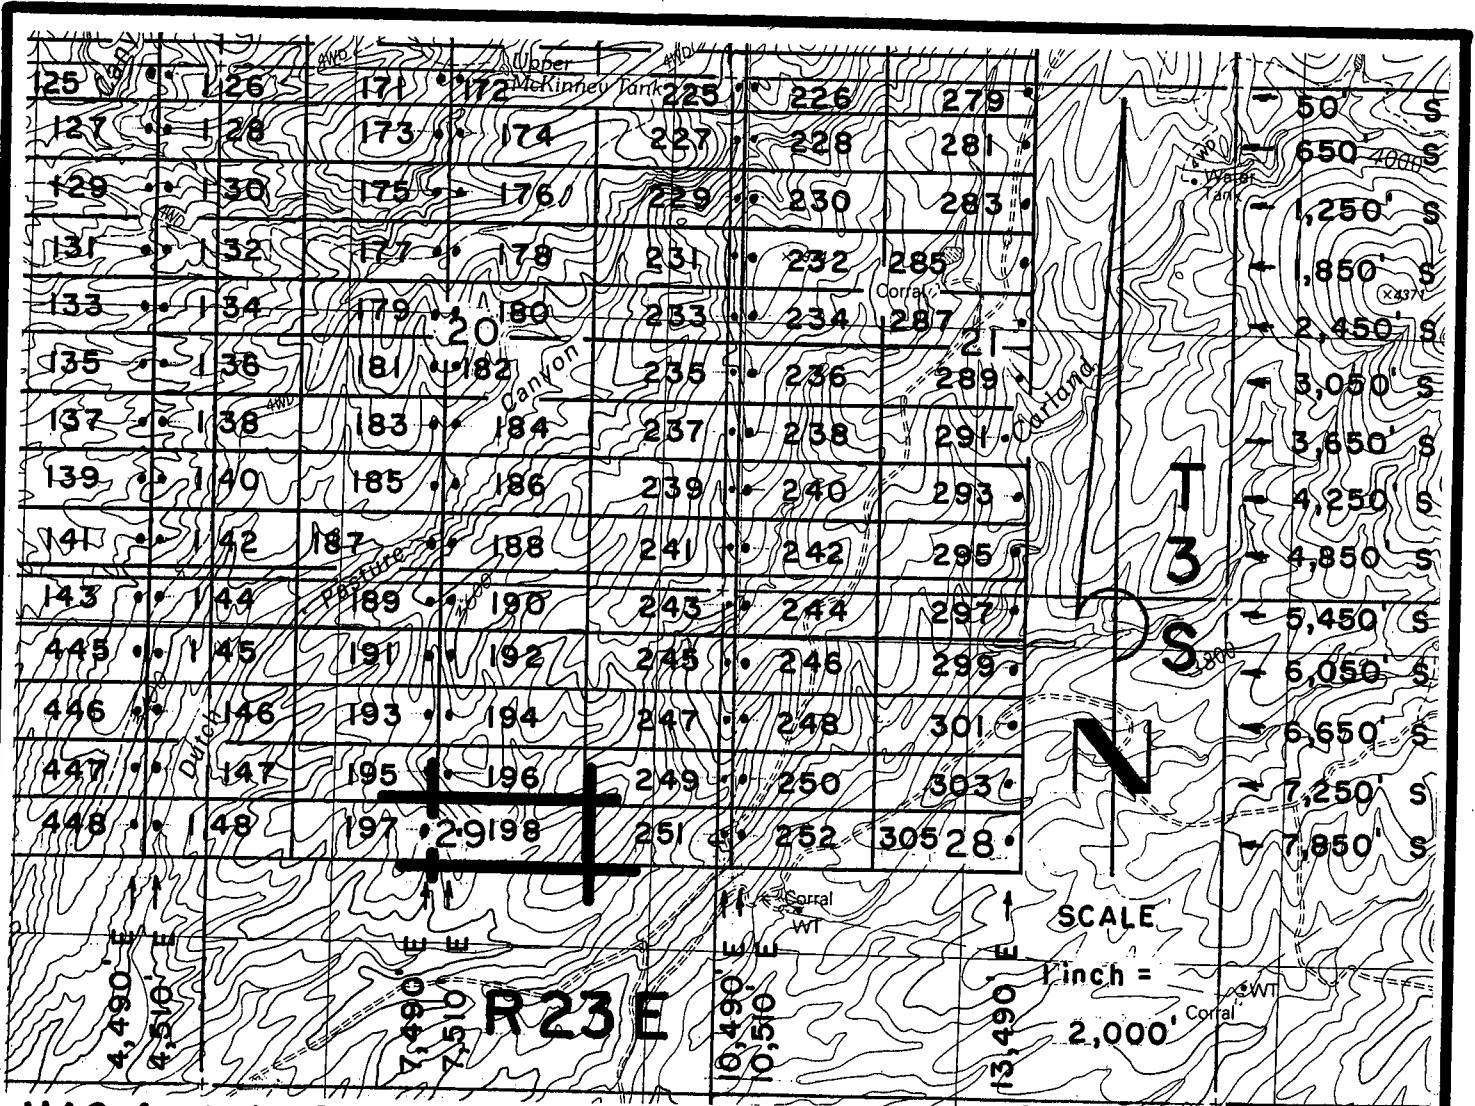 Upper
McKinney Tank
4WD 4WD
125 126 171 172 225 226 279 50' S
127 128 173 174 227 228 281 650' S
4000
4WD
Water
Tank
129 130 175 176 229 230 283 1,250' S
4WD
131 132 177 178 231 232 285 1,850' S
Corral
×4371
133 134 179 180 233 234 287 2,450' S
20 21
135 136 181 182 235 236 289 3,050' S
Canyon
Garland
4WD
137 138 183 184 237 238 291 3,650' S
139 140 185 186 239 240 293 4,250' S
T
3
S
141 142 187 188 241 242 295 4,850' S
Pasture
143 144 189 190 243 244 297 5,450' S
445 145 191 192 245 246 299 6,050' S
3800
446 146 193 194 247 248 301 6,650' S
Dutch
N
447 147 195 196 249 250 303 7,250' S
448 148 197 29 198 251 252 305 28 7,850' S
Corral
WT
4,490' E
4,510' E
7,490' E
7,510' E
10,490' E
10,510' E
13,490' E
R 23 E
SCALE
1 inch =
2,000'
WT
Corral